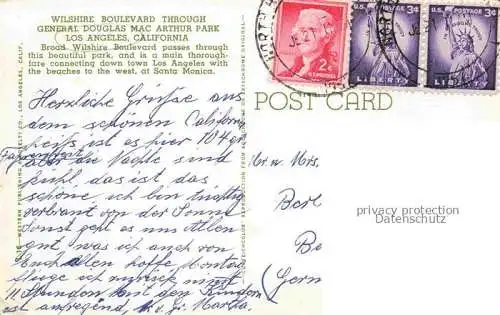 WILSHIRE BOULEVARD THROUGH
GENERAL DOUGLAS MAC ARTHUR PARK
LOS ANGELES, CALIFORNIA
Broad Wilshire Boulevard passes through
this beautiful park, and is a main thorough-
fare connecting down town Los Angeles with
the beaches to the west, at Santa Monica.
POST CARD
2¢
U.S. POSTAGE
3¢
LIBERTY
3¢
LIBERTY
NORTH
Herzliche Grüße aus
dem schönen Californ
heiß ist es hier 104 gr
Fahrenheit
aber die Nächte sind
kühl, das ist das
schöne, ich bin tüchtig
verbrant von der Sonne
Sonst geht es uns allen
gut was ich auch von
Euch allen hoffe Montag
fliege ich
11 Stunden mit den Kindern
ist anstregend, Martha
Mr u. Mrs.
Berl
Be
(Germ
privacy protection
Datenschutz